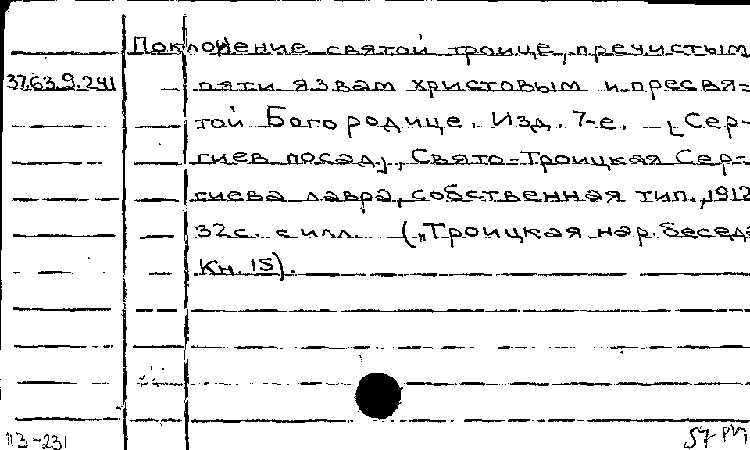 Поклонение святой троице, пречистым
37.63.9.241 пяти язвам христовым и пресвя=
той Богородице. Изд. 7-е. – [Сер-
гиев посад], Свято-Троицкая Сер=
гиева лавра, собственная тип., 1912
32с. с илл. („Троицкая нар. беседа
Кн. 15).
П3-231